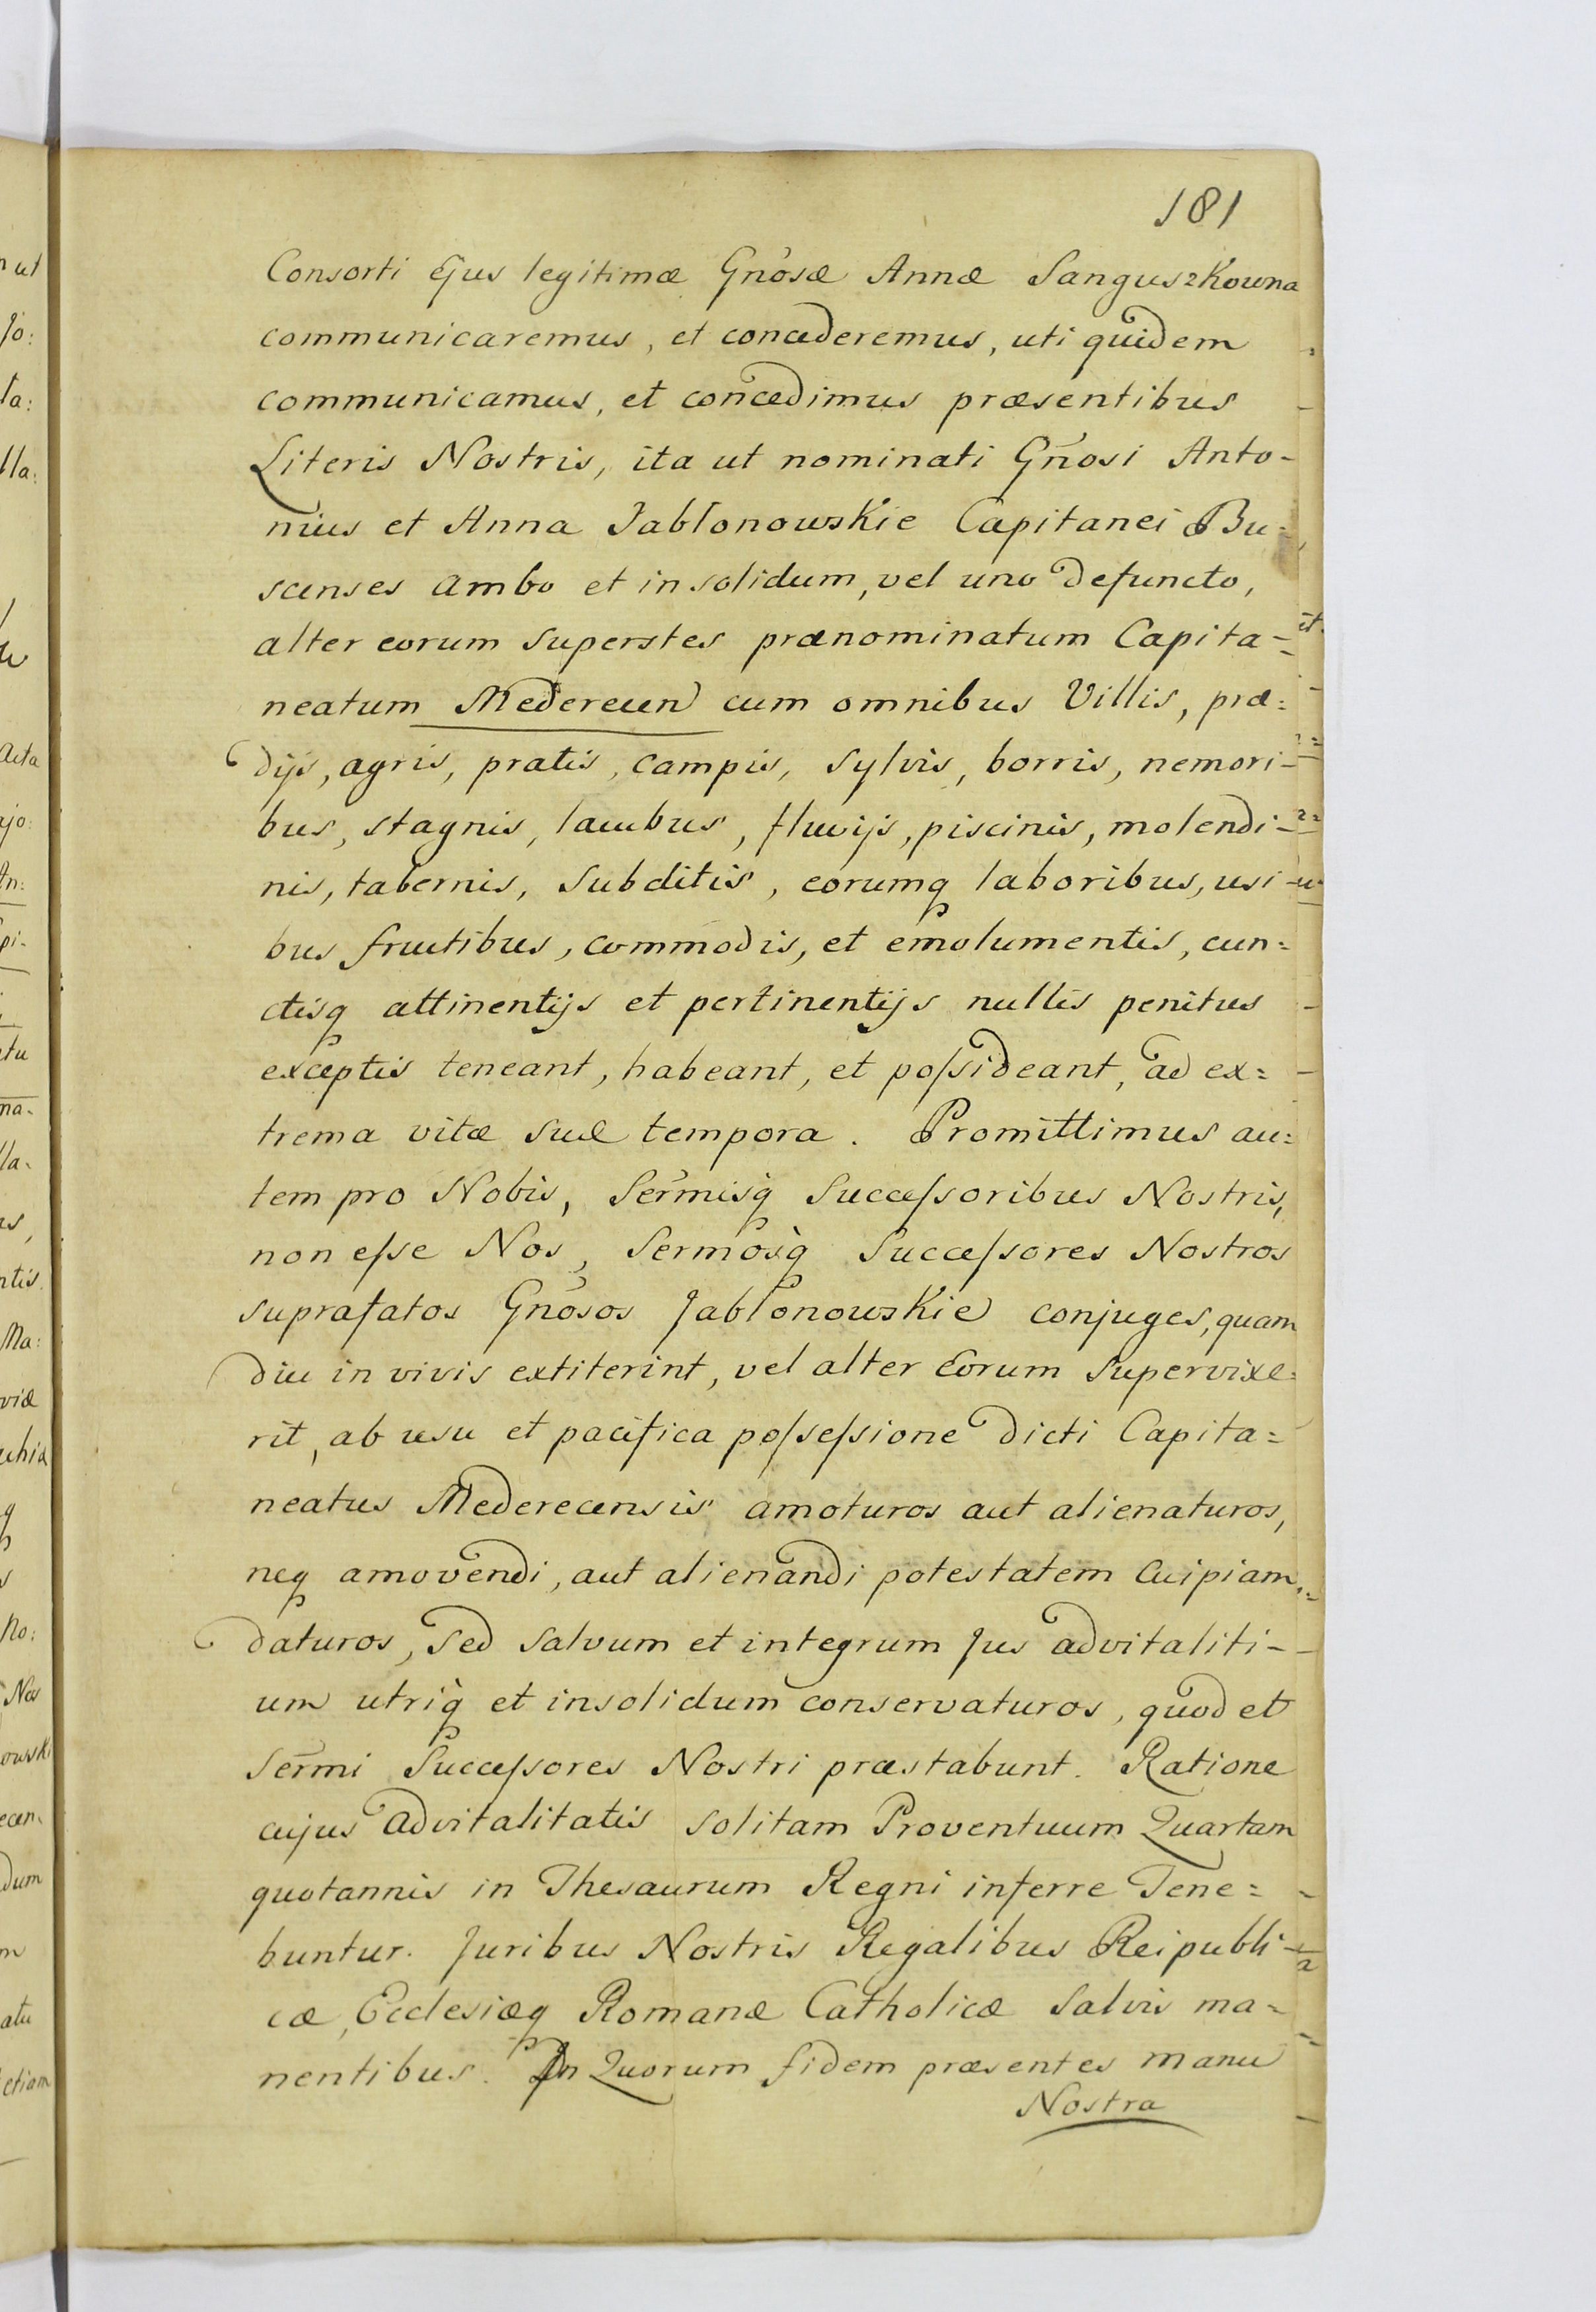 181
Consorti ejus legitimæ Gnosæ Annæ Sanguszkowna
communicaremus, et concederemus, uti quidem
communicamus, et concedimus præsentibus
Literis Nostris, ita ut nominati Gnosi Anto-
nius et Anna Jabłonowskie Capitanei Bu=
scenses ambo et in solidum, vel uno defuncto,
alter eorum superstes prænominatum Capita-
neatum Mederecen cum omnibus Villis, præ=
dijs, agris, pratis, campis, sylvis, borris, nemori-
bus, stagnis, lacubus, fluvijs, piscinis, molendi-
nis, tabernis, subditis, eorumq laboribus, usi-
bus fructibus, commodis, et emolumentis, cun=
ctisq attinentijs et pertinentijs nullis penitus
exceptis teneant, habeant, et possideant, ad ex=
trema vitæ suæ tempora. Promittimus au=
tem pro Nobis, Sermisq Successoribus Nostris,
non esse Nos, Sermosq Successores Nostros
suprafatos Gnosos Jabłonowskie conjuges, quam
diu in vivis extiterint, vel alter Eorum supervixe=
rit, ab usu et pacifica possessione dicti Capita=
neatus Mederecensis amoturos aut alienaturos,
neq amovendi, aut alienandi potestatem cuipiam
daturos, sed salvum et integrum Jus advitaliti-
um utriq et insolidum conservaturos, quod et
Sermi Successores Nostri præstabunt. Ratione
cujus advitalitatis solitam Proventuum Quartam
quotannis in Thesaurum Regni inferre Tene=
buntur. Juribus Nostris Regalibus Reipubli-
cæ, Ecclesiæq Romanæ Catholicæ salvis ma=
nentibus. In Quorum fidem præsentes manu
Nostra